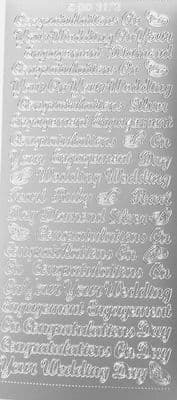 Congratulations On
Your Wedding On Your
Engagement Diamond
Congratulations On
Year On Your Wedding
Congratulations Silver
Engagement Engagement
Congratulations On
Your Engagement Day
Wedding Wedding
Pearl Ruby Heart
Day Diamond Silver
Congratulations On
Congratulations On
On Congratulations On
On Your Your Wedding
Engagement Engagement
On Congratulations Day
Congratulations On Day
Your Wedding Day